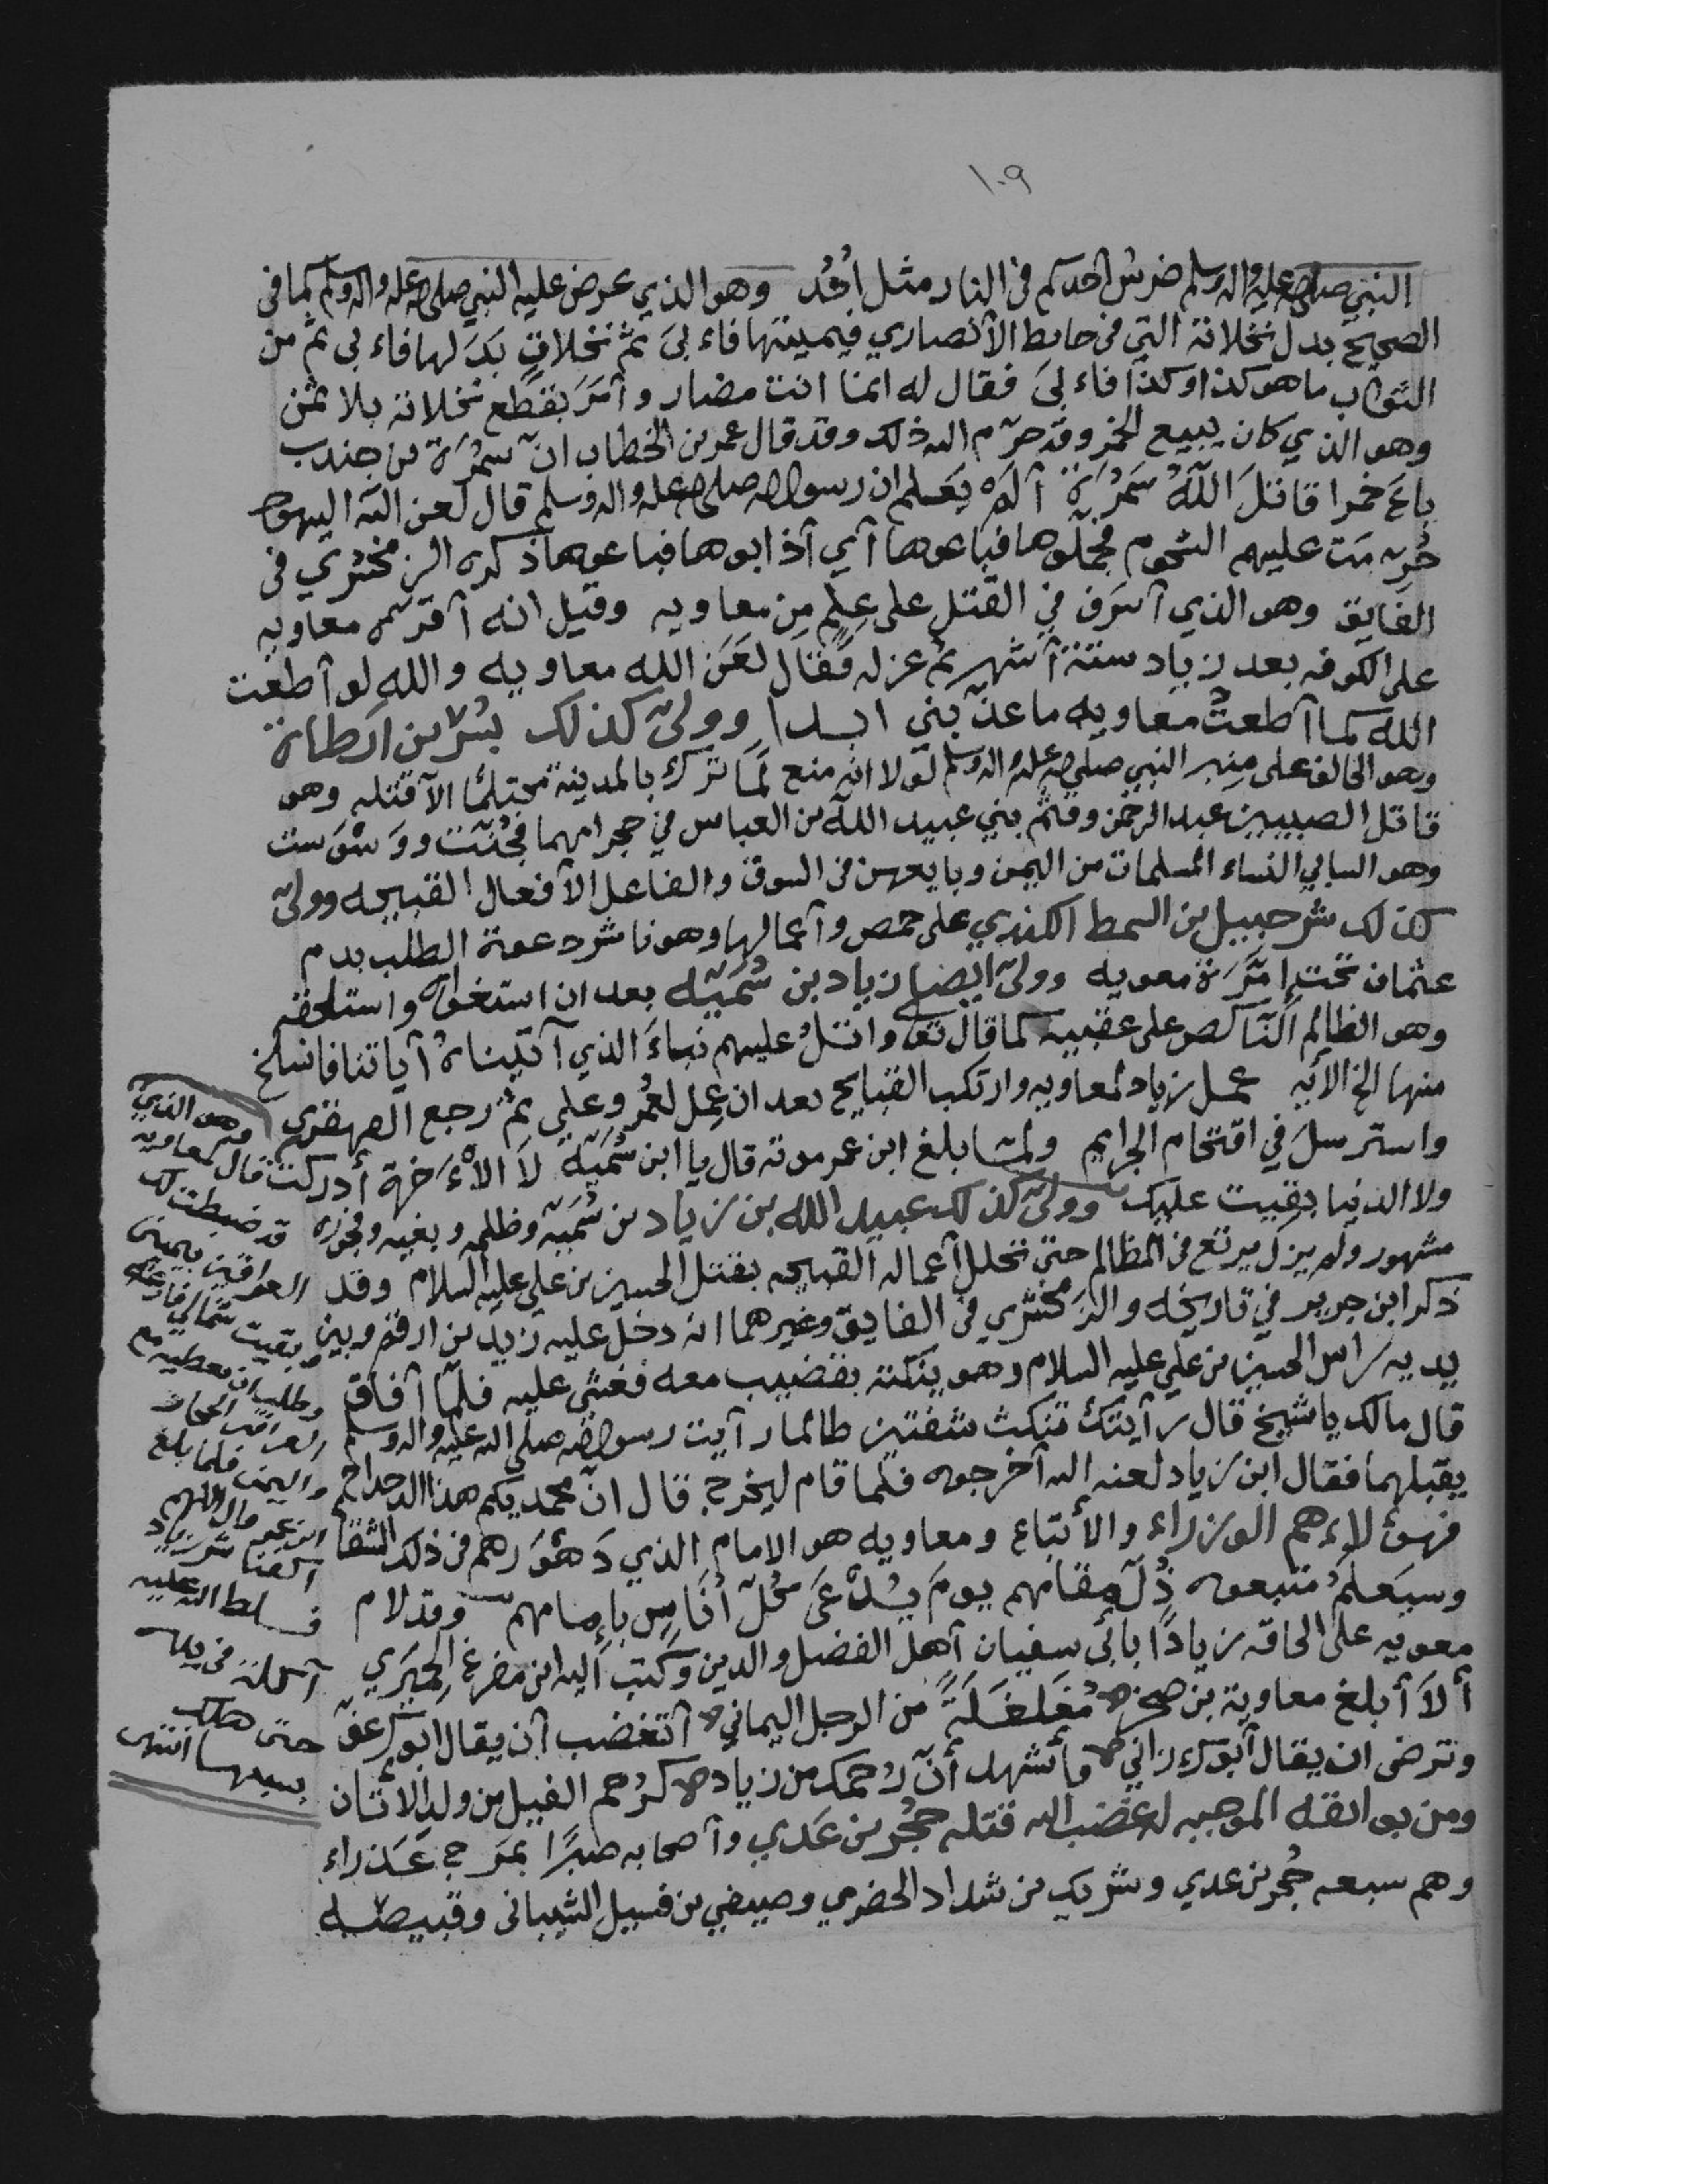 ١٠٩
النبي صلى الله عليه واله وسلم ضرس احدكم في النار مثل اُحُد وهو الذي عرض عليه النبي صلى الله عليه واله وسلم كما في
الصحيح بدل نخلاته التي في حايط الأنصاري قيمتها فاء بىَ ثم نخلاتٍ بَدَلها فاء بى ثم من
الثواب ما هو كذا وكذا فاء بىَ فقال له انما انت مضار وأمَرَ بقطع نخلاته بلا ثمن
وهو الذي كان يبيع الخمر وقد حرّم الله ذلك وقد قال عمر بن الخطاب انّ سَمُرَة بن جندب
باعَ خمرا قاتلَ اللهُ سَمُرَة ألم يَعْلم ان رسول الله صلى الله عليه واله وسلم قال لعن الله اليهود
حُرِّمَت عليهم الشحوم فجملوها فباعوها أي أذابوها فباعوها ذكره الزمخشري في
الفايق وهو الذي أسرَف في القَتلِ على عِلمٍ مِن معاويه وقيل انه أقرّه معاويه
على الكوفه بعد زياد ستة أشهر ثم عزله فقال لعَنَ الله معاويه واللهِ لو أطعت
الله كما أطعتُ معاويه ما عذّبني ابدا وولّى كذلك بُسْر بن ارطاة
وهو الحالف على منبر النبي صلى الله عليه واله وسلم لولا انه منع لَمَا ترك بالمدينة محتلمًا الا قتله وهو
قاتل الصبيين عبد الرحمن وقثم بني عبيد الله بن العباس في حجر امهما فجُنّت ووَسْوَست
وهو السابي النساء المسلمات من اليمن وبايعهن في السوق والفاعل الأفعال القبيحه وولى
كذلك شرحبيل بن السمط الكندي على حمص وأعمالها وهو ناشر دعوة الطلب بدم
عثمان تحت إمْرَة معويه وولّى ايضا زياد بن سُمَيّه بعد ان استغواه واستلحقه
وهو الظالم النّاكص على عقبيه كما قال تعالى واتلُ عليهم نباءَ الذي آتيناهُ آياتنا فانسلخ
منها الخ الآيه عمل زياد لمعاويه وارتكب القبايح بعد ان عمِل لعُمر وعلي ثم رجع القهقرى
واسترسلَ في اقتحام الجرايم ولمّا بلغ ابن عمر موته قال يا ابن سُمَيّه لا الأخرة أدركت
ولا الدنيا بقيت عليك وولّى كذلك عبيد الله بن زياد بن سُمَيّه وظلمه وبغيه وفجوره
مشهور ولم يزل يرتع في المظالم حتى تحلل أعماله القبيحه بقتل الحسين بن علي عليه السلام وقد
ذكر ابن جرير في تاريخه والزمخشري في الفايق وغيرهما انه دخل عليه زيد بن ارقم وبين
يديه راس الحسين بن علي عليه السلام وهو ينكته بقضيب معه فغشي عليه فلمّا أفاق
قال مالك يا شيخ قال رأيتك تنكث شفتين طالما رأيت رسول الله صلى الله عليه واله وسلم
يقبلهما فقال ابن زياد لعنه الله أخرجوه فلما قام ليخرج قال انّ محمديكم هذا الدحداح
فهؤلاء هم الوزراء والأتباع ومعاويه هو الامام الذي دَهْوَرهم في ذلك الشقا
وسيَعلمُ متبعوه ذُلّ مقامهم يومَ يُدْعَى كلّ أنَاسٍ بإمامهم وقد لام
معويه على الحاقه زيادًا بابي سفيان أهل الفضل والدين وكتب اليه ابن مفرغ الحميَري
ألاَ أبلغ معاوية بن صخرٍ مُغَلغَلَةً من الرجل اليماني أتغضب أن يقال ابوك عفّ
وترضى ان يقال أبوك زاني فأشهد أنّ رُحمك من زياد كرُحم الفيل من ولد الأتان
ومن بوايقه الموجبه لغضب الله قتله حُجْر بن عَدي وأصحابه صبرًا بمَرج عَذراء
وهم سبعه حُجر بن عدي وشريك بن شداد الحضرمي وصيفي بن فسيل الشيباني وقبيصه
وهو الذي
قال لمعاويه
قد ضبطت لك
العراقين بيميني
وبقيت شمالي فارغه
وطلب ان يعطيه مع
العراقين الحجاز
واليمن فلما بلغ
ابن عمر قال اللهم
اكفنا شر زياد
فسلط الله عليه
آكلة في يده
حتى هلك
بسببها انتهى